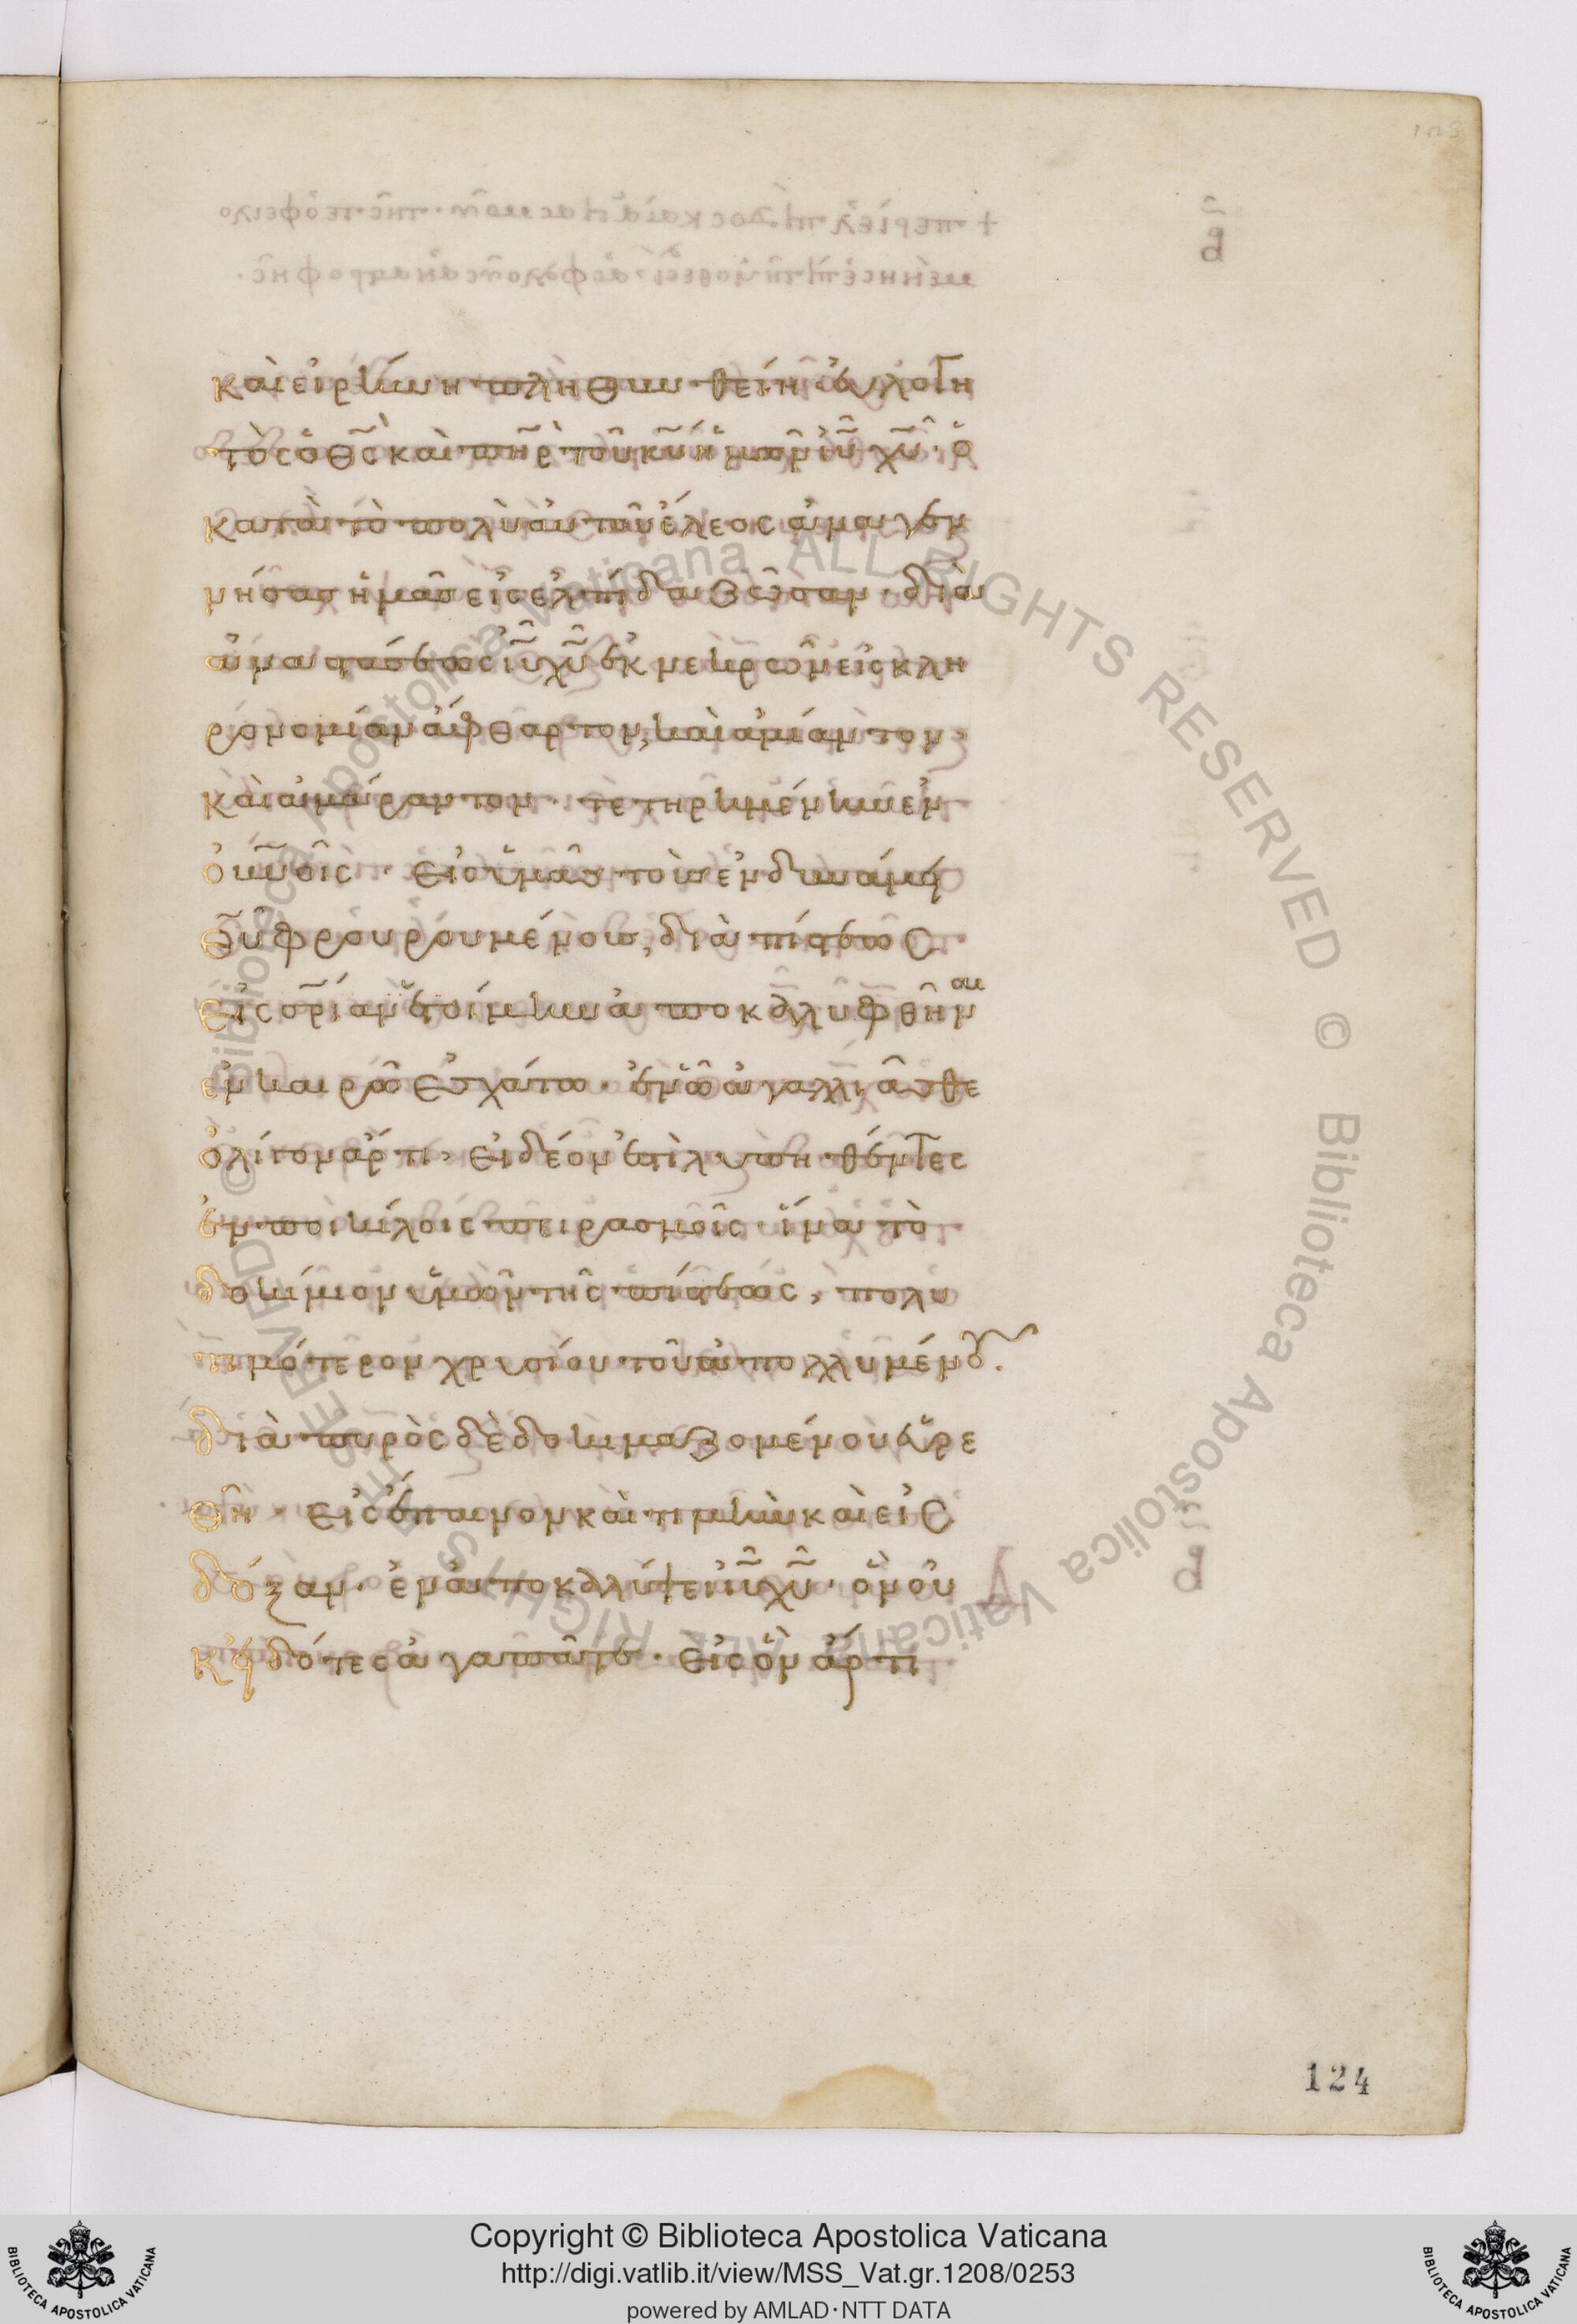 καὶ εἰρήνη πληθυνθείη· εὐλογη
τὸς ὁ θ̅ς̅ καὶ π̅η̅ρ̅ τοῦ κ̅υ̅ ἡμῶν ι̅υ̅ χ̅υ̅· ὁ
κατὰ τὸ πολὺ αὐτοῦ ἔλεος ἀναγεν
νήσας ἡμᾶς εἰς ἐλπίδα ζῶσαν· δι' ἀ
ναστάσεως ι̅υ̅ χ̅υ̅ ἐκ νεκρῶν εἰς κλη
ρονομίαν ἄφθαρτον, καὶ ἀμίαντον,
καὶ ἀμάραντον· τετηρημένην ἐν
ο̅υ̅ν̅οῖς· εἰς ὑμᾶς τοὺς ἐν δυνάμει
θ̅υ̅ φρουρουμένους, διὰ πίστεως
εἰς σ̅ρ̅ίαν ἑτοίμην ἀποκαλυφθῆναι
ἐν καιρῶ ἐσχάτω· ἐν ὧ ἀγαλλιᾶσθε
ὀλίγον ἄρτι, εἰ δέον ἐστὶ λυπηθέντες
ἐν ποικίλοις πειρασμοῖς· ἵνα τὸ
δοκίμιον ὑμῶν τῆς πίστεως, πολυ
τιμότερον χρυσίου τοῦ ἀπολλυμένου·
διὰ πυρὸς δὲ δοκιμαζομένου εὑρε
θῆ· εἰς ἔπαινον καὶ τιμὴν καὶ εἰς
δόξαν· ἐν ἀποκαλύψει ι̅υ̅ χ̅υ̅· ὃν οὐκ
εἰδότες ἀγαπᾶτε· εἰς ὃν ἄρτι
124
Copyright © Biblioteca Apostolica Vaticana
http://digi.vatlib.it/view/MSS_Vat.gr.1208/0253
powered by AMLAD·NTT DATA
© Biblioteca Apostolica Vaticana ALL RIGHTS RESERVED
© Biblioteca Apostolica Vaticana ALL RIGHTS RESERVED
BIBLIOTECA APOSTOLICA VATICANA
BIBLIOTECA APOSTOLICA VATICANA